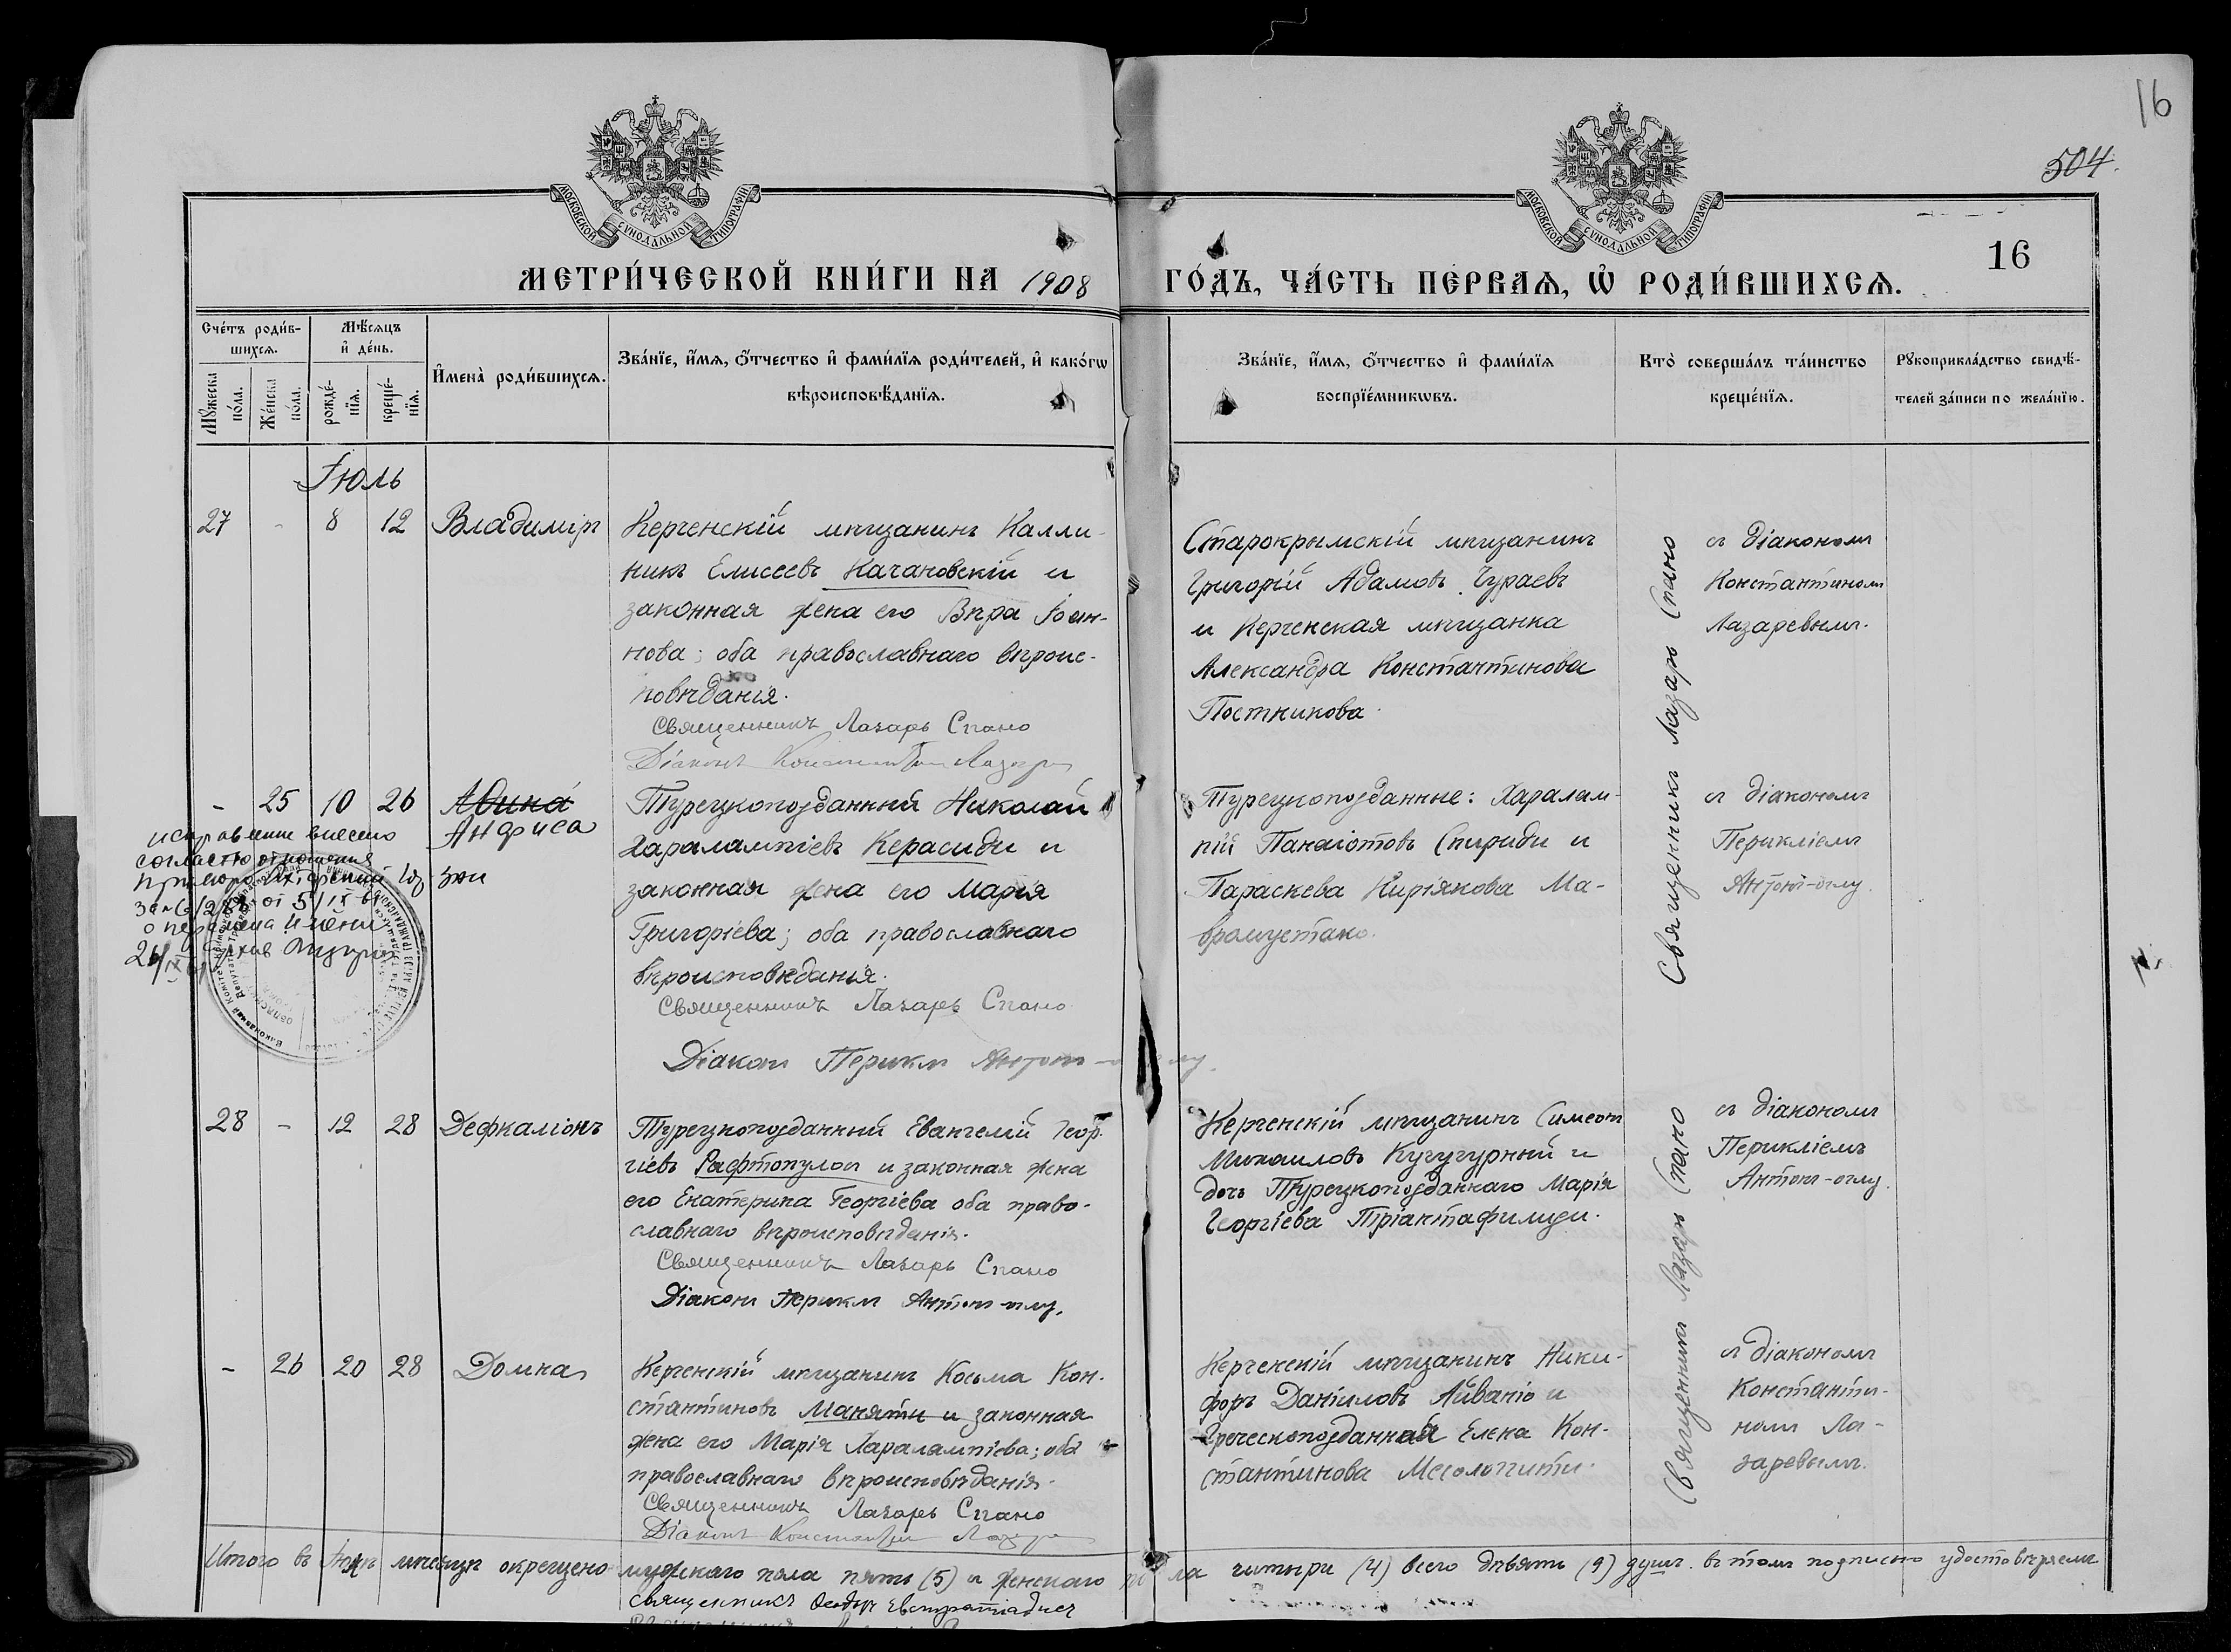 16
504.
МОСКОВСКОЙ СѴНОДАЛЬНОЙ ТИПОГРАФІИ
МОСКОВСКОЙ СѴНОДАЛЬНОЙ ТИПОГРАФІИ
16
МЕТРИ́ЧЕСКОЙ КНИ́ГИ НА 1908
ГО́ДЪ, ЧА́СТЬ ПЕ́РВАѦ, Ѡ҆ РОДИ́ВШИХСѦ.
Сче́тъ роди́в-
шихсѧ.
Мꙋ́жеска по́ла.
Же́нска по́ла.
Мѣ́сѧцъ
и҆ де́нь.
рожде́-
нїѧ.
креще́-
нїѧ.
И҆мена̀ роди́вшихсѧ.
Зва́нїе, и҆́мѧ, ѻ҆́тчество и҆ фами́лїѧ роди́телей, и҆ како́гѡ
вѣроисповѣ́данїѧ.
Зва́нїе, и҆́мѧ, ѻ҆́тчество и҆ фами́лїѧ
воспрїе́мникѡвъ.
Кто̀ соверша́лъ та́инство
креще́нїѧ.
Рꙋкоприкла́дство свидѣ́-
телей за́писи по жела́нїю.
Іюль
27 - 8 12 Владиміръ
Керченскій мѣщанинъ Калли-
никъ Елисеевъ Качановскій и
законная жена его Вѣра Іоан-
нова; оба православнаго вѣроис-
повѣданія.
Священникъ Лазарь Спано
Діаконъ Константин Лазарев
Старокрымскій мѣщанинъ
Григорій Адамовъ Чураевъ
и Керченская мѣщанка
Александра Константинова
Постникова.
Священникъ Лазарь Спано
съ діакономъ
Константиномъ
Лазаревымъ.
- 25 10 26 Авина
Анфиса
исправление внесено
согласно отношения
о перемена имени
Турецкоподданный Николай
Харалампіевъ Керасиди и
законная жена его Марія
Григоріева; оба православнаго
вѣроисповѣданія.
Священникъ Лазарь Спано
Діаконъ Перикл Антон-оглу.
Турецкоподданные: Харалам-
пій Панаіотовъ Спириди и
Параскева Киріякова Ма-
вромустако.
съ діакономъ
Перикліемъ
Антон-оглу.
28 - 12 28 Дефкаліонъ
Турецкоподданный Евангелій Геор-
гіевъ Рафтопулоп и законная жена
его Екатерина Георгіева оба право-
славнаго вѣроисповѣданія.
Священникъ Лазарь Спано
Діаконъ Перикл Антон-оглу.
Керченскій мѣщанинъ Симеонъ
Михаиловъ Кугугурный и
дочь Турецкоподданнаго Марія
Георгіева Тріантафилиди.
Священникъ Лазарь Спано
съ діакономъ
Перикліемъ
Антон-оглу.
- 26 20 28 Домна
Керченскій мѣщанинъ Косьма Кон-
стантиновъ Маняти и законная
жена его Марія Харалампіева; оба
православнаго вѣроисповѣданія.
Священникъ Лазарь Спано
Діаконъ Константин Лазарев
Керченскій мѣщанинъ Ники-
форъ Даніиловъ Айваніо и
Греческоподданная Елена Кон-
стантинова Месолонгити.
съ діакономъ
Константи-
номъ Ла-
заревымъ.
Итого въ Іюлѣ мѣсяцѣ окрещено мужскаго пола пять (5) и женскаго пола четыри (4) всего дѣвять (9) душъ. въ томъ подписью удостовѣряемъ
Священникъ Феодоръ Евстратіадисъ